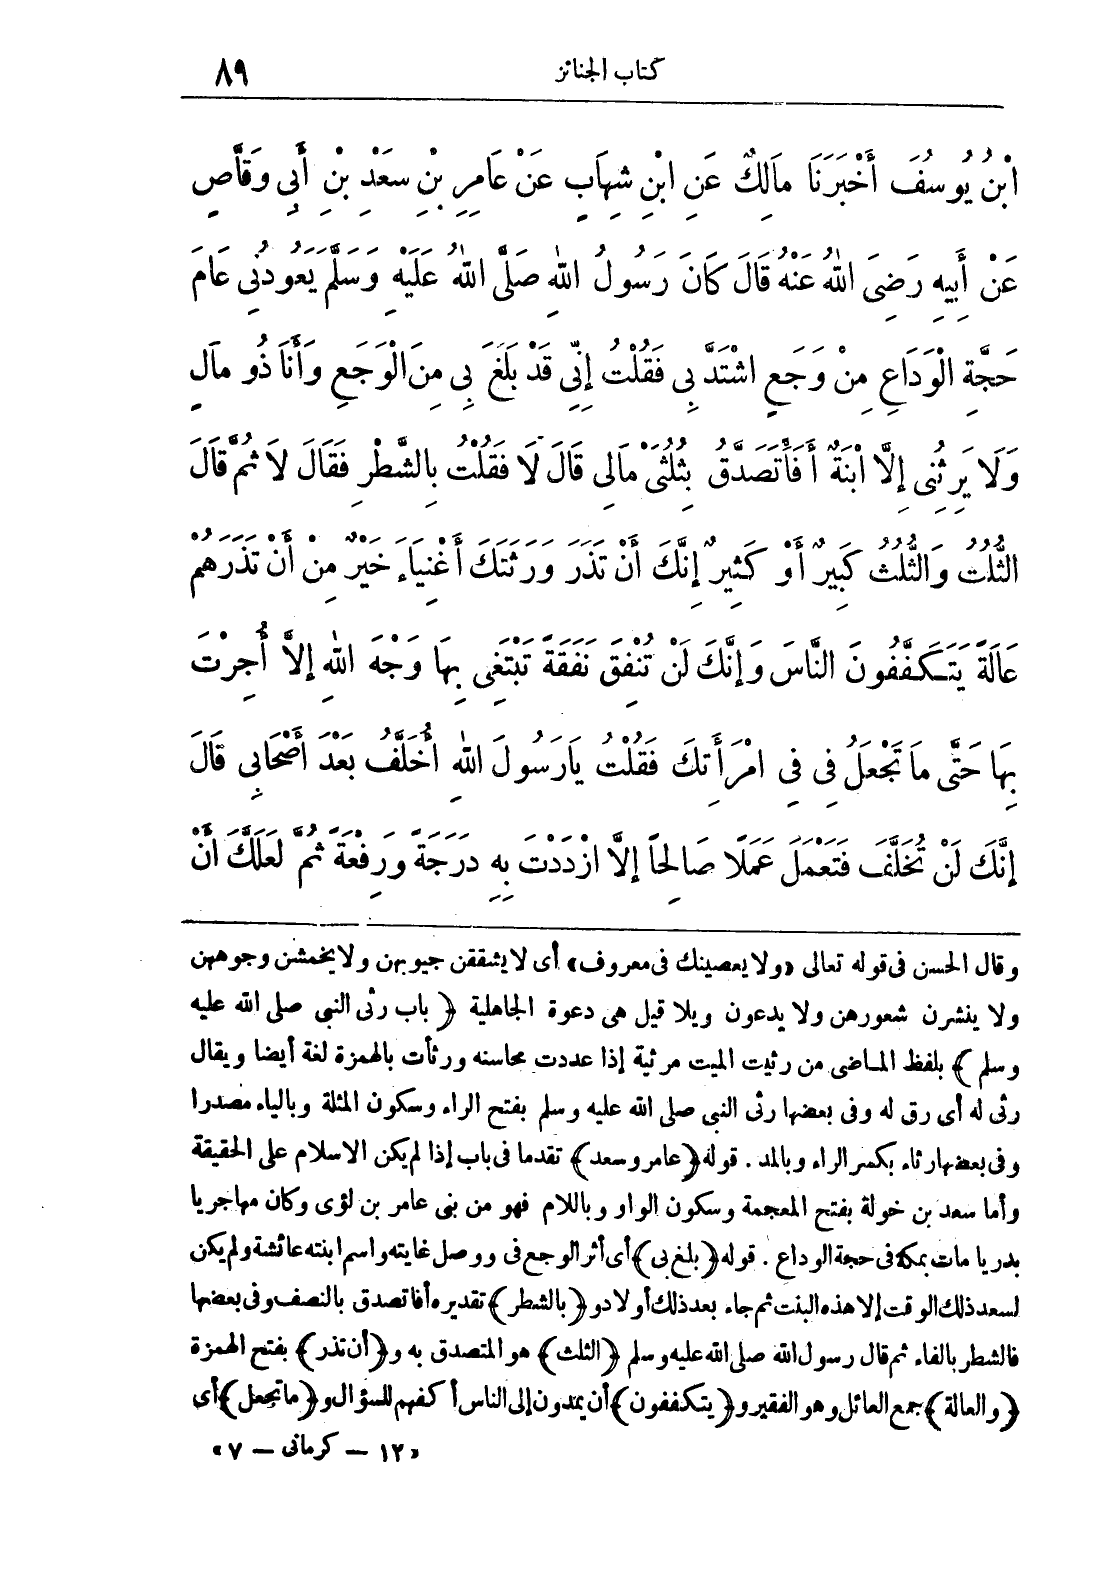 كتاب الجنائز ٨٩
ابْنُ يُوسُفَ أَخْبَرَنَا مَالِكٌ عَنِ ابْنِ شِهَابٍ عَنْ عَامِرِ بْنِ سَعْدِ بْنِ أَبِى وَقَّاصٍ
عَنْ أَبِيهِ رَضِىَ اللهُ عَنْهُ قَالَ كَانَ رَسُولُ اللهِ صَلَّى اللهُ عَلَيْهِ وَسَلَّمَ يَعُودُنِى عَامَ
حَجَّةِ الْوَدَاعِ مِنْ وَجَعٍ اشْتَدَّ بِى فَقُلْتُ إِنِّى قَدْ بَلَغَ بِى مِنَ الْوَجَعِ وَأَنَا ذُو مَالٍ
وَلَا يَرِثُنِى إِلَّا ابْنَةٌ أَفَأَتَصَدَّقُ بِثُلُثَىْ مَالِى قَالَ لَا فَقُلْتُ بِالشَّطْرِ فَقَالَ لَا ثُمَّ قَالَ
الثُّلُثُ وَالثُّلُثُ كَبِيرٌ أَوْ كَثِيرٌ إِنَّكَ أَنْ تَذَرَ وَرَثَتَكَ أَغْنِيَاءَ خَيْرٌ مِنْ أَنْ تَذَرَهُمْ
عَالَةً يَتَكَفَّفُونَ النَّاسَ وَإِنَّكَ لَنْ تُنْفِقَ نَفَقَةً تَبْتَغِى بِهَا وَجْهَ اللهِ إِلَّا أُجِرْتَ
بِهَا حَتَّى مَا تَجْعَلُ فِى فِى امْرَأَتِكَ فَقُلْتُ يَا رَسُولَ اللهِ أُخَلَّفُ بَعْدَ أَصْحَابِى قَالَ
إِنَّكَ لَنْ تُخَلَّفَ فَتَعْمَلَ عَمَلًا صَالِحاً إِلَّا ازْدَدْتَ بِهِ دَرَجَةً وَرِفْعَةً ثُمَّ لَعَلَّكَ أَنْ
وقال الحسن فى قوله تعالى «ولا يعصينك فى معروف» أى لا يشققن جيوبهن ولا يخمشن وجوههن
ولا ينشرن شعورهن ولا يدعون ويلا قيل هى دعوة الجاهلية ﴿باب رثى النبى صلى الله عليه
وسلم﴾ بلفظ الماضى من رثيت الميت مرثية إذا عددت محاسنه ورثأت بالهمزة لغة أيضا ويقال
رثى له أى رق له وفى بعضها رثى النبى صلى الله عليه وسلم بفتح الراء وسكون المثلة وبالياء مصدرا
وفى بعضها رثاء بكسر الراء وبالمد . قوله ﴿عامر وسعد﴾ تقدما فى باب إذا لم يكن الاسلام على الحقيقة
وأما سعد بن خولة بفتح المعجمة وسكون الواو وباللام فهو من بنى عامر بن لؤى وكان مهاجريا
بدريا مات بمكة فى حجة الوداع . قوله ﴿بلغ بى﴾ أى أثر الوجع فى ووصل غايته واسم ابنته عائشة ولم يكن
لسعد ذلك الوقت إلا هذه البنت ثم جاء بعد ذلك أولاد و ﴿بالشطر﴾ تقديره أفاتصدق بالنصف وفى بعضها
فالشطر بالفاء ثم قال رسول الله صلى الله عليه وسلم ﴿الثلث﴾ هو المتصدق به و ﴿أن تذر﴾ بفتح الهمزة
﴿والعالة﴾ جمع العائل وهو الفقير و ﴿يتكففون﴾ أن يمدون إلى الناس أكفهم للسؤال و ﴿ما تجعل﴾ أى
«١٢ — كرمانى — ٧»